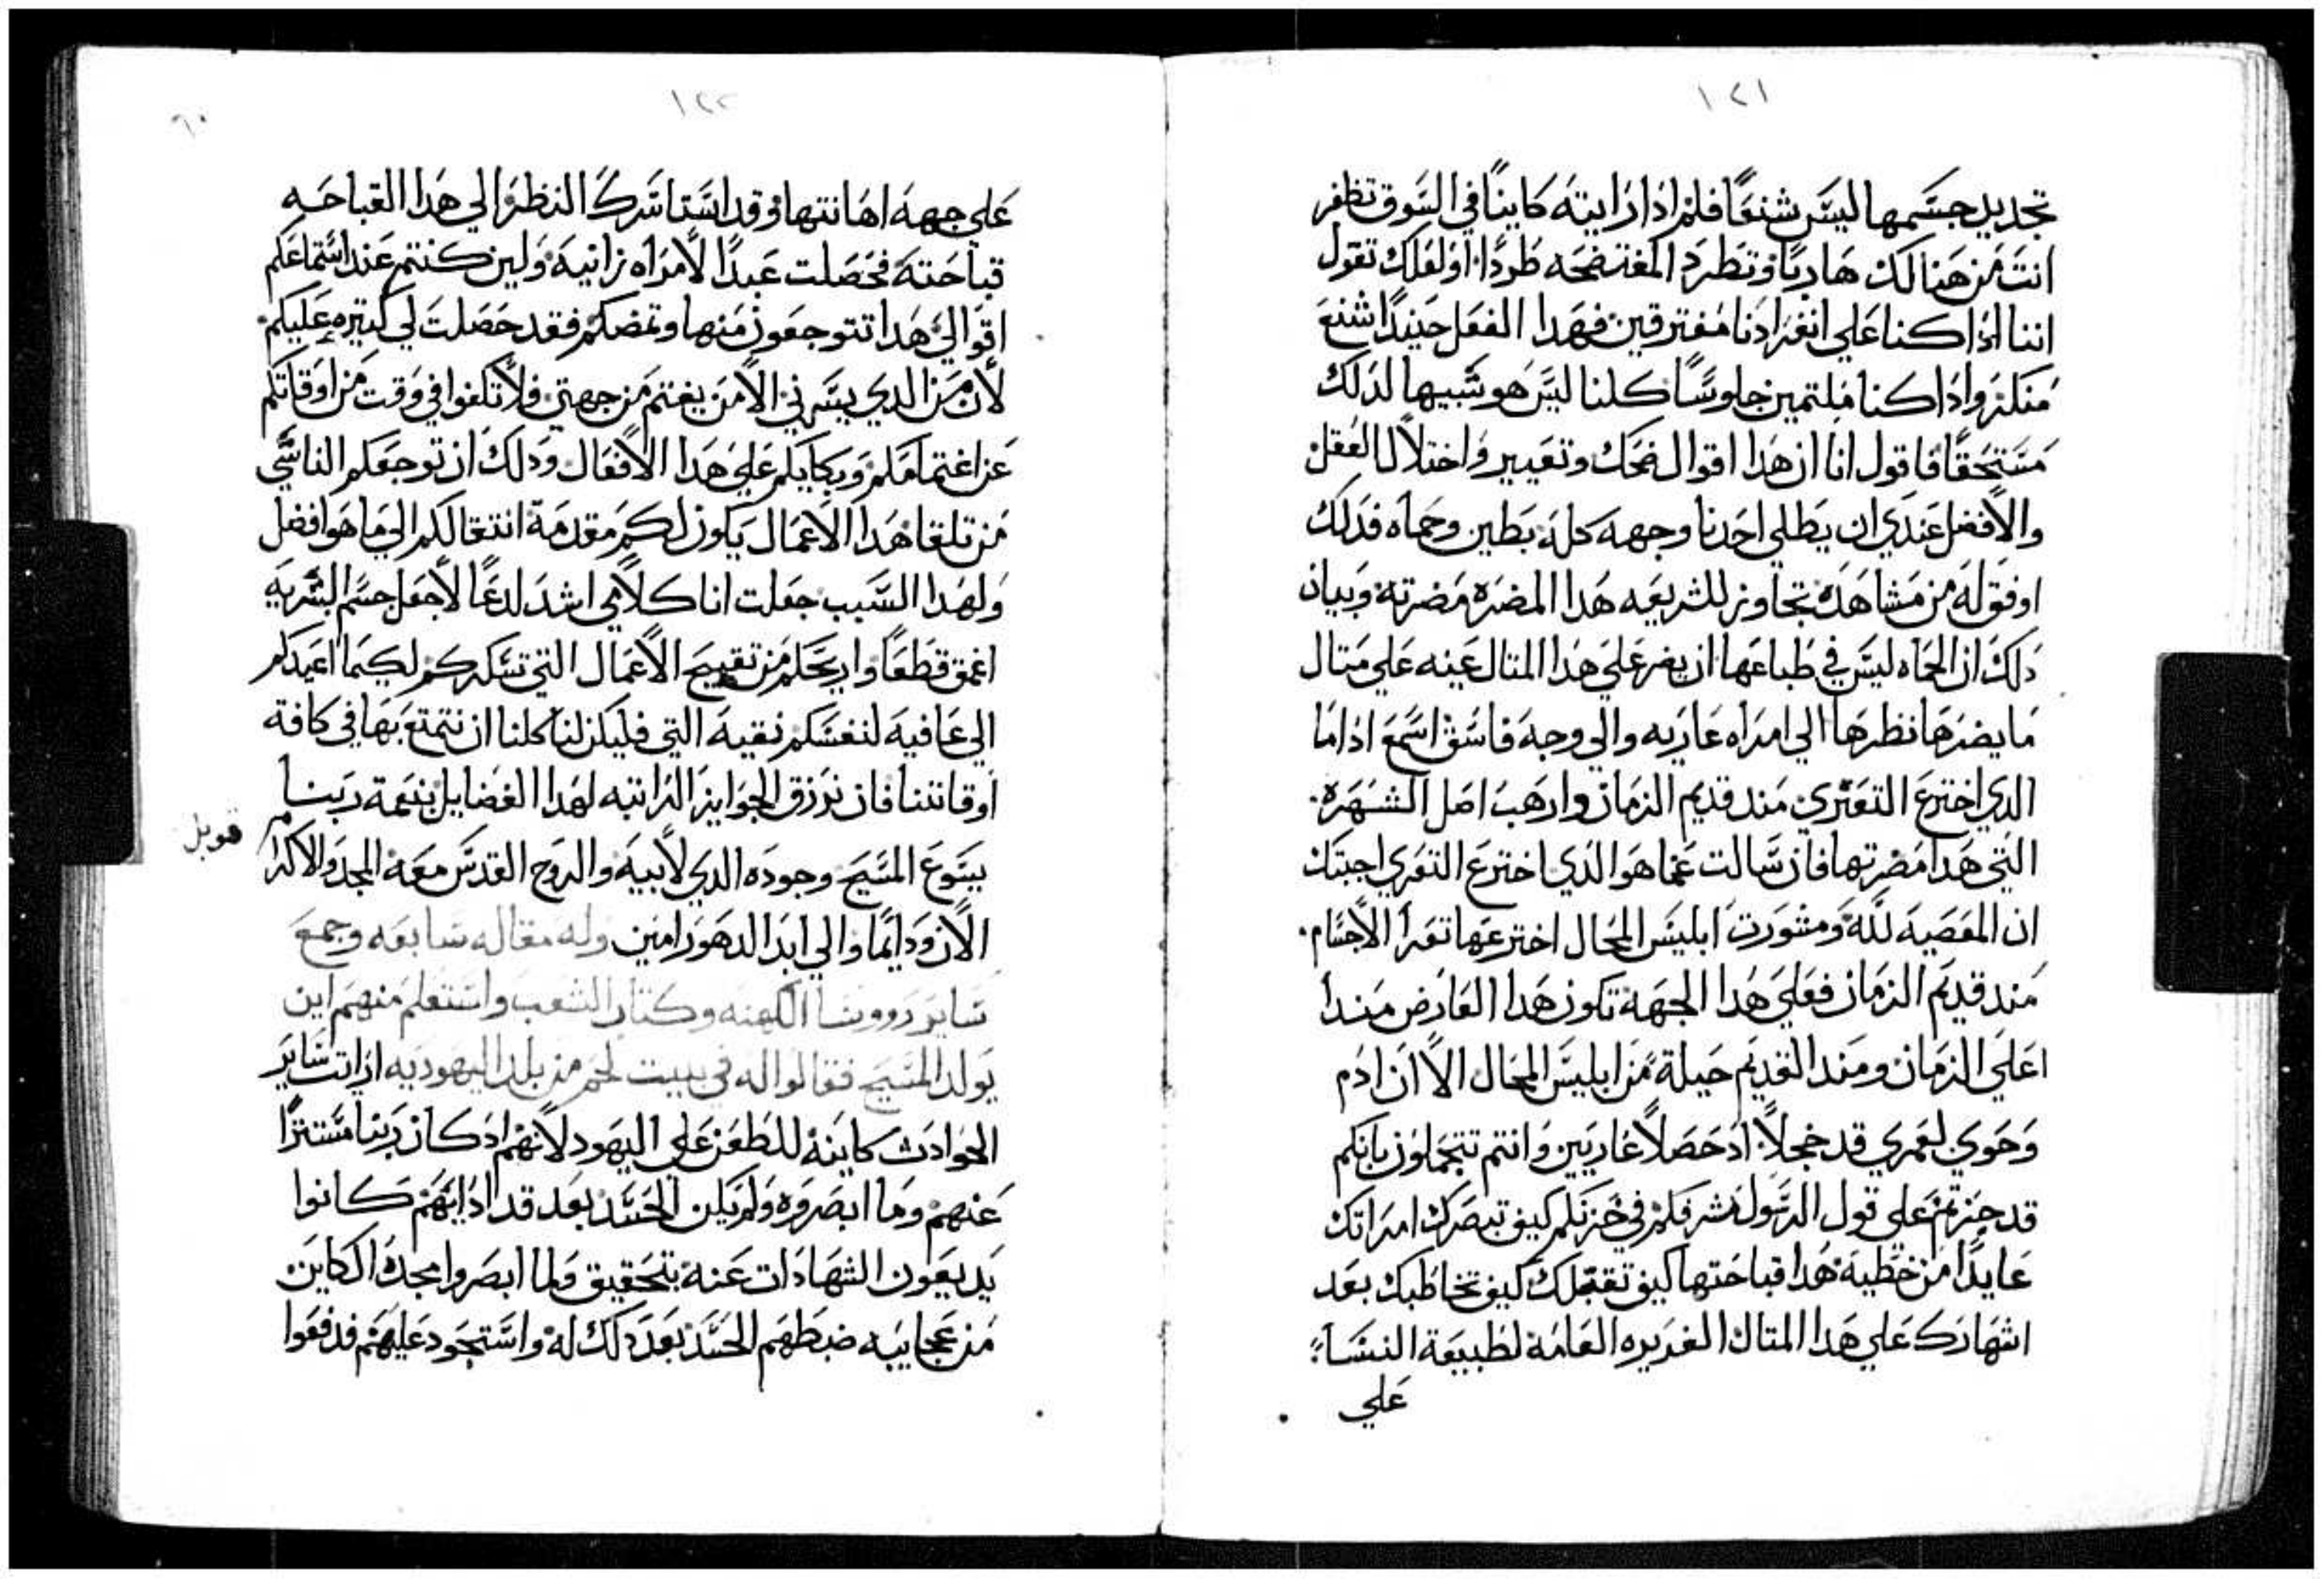 ١٢١
تجديد جسمها ليس شنعًا فلم ادا رايته كاينًا في السوق تظفر
انت من هنالك هاربًا وتطرد المفتضحه طردًا اولعلك تقول
اننا ادا كنا علي انفرادنا مفترقين فهدا الفعل حينيدًا شنع
منكر وادا كنا ملتمين جلوسًا كلنا ليس هو شبيها لدلك
مستحقًا فاقول انا ان هدا اقوال ضحك وتعيير واختلال العقل
والافضل عندي ان يطلي احدنا وجهه كله بطين وحماه فدلك
اوفق له من مشاهدة تجاوز للشريعه هدا المضره مضرته وبيان
دلك ان الحماه ليس في طباعها ان يضر علي هدا المتال عينه علي متال
ما يضرها نظرها الي امراه عاريه والي وجه فاسق اسمع ادا ما
الدي اخترع التعري مند قديم الزمان وارهب اصل الشهره
التي هدا مضرتها فان سالت عما هو الدي اخترع التعري اجبتك
ان المعصيه لله ومشورت ابليس المحال اخترعها تعرا الاجسام
مند قديم الزمان فعلي هدا الجهة تكون هدا العارض مندا
اعلي الزمان ومند القديم حيلة من ابليس المحال الا ان ادم
وحوي لعمري قد خجلا اد حصلا عاريين وانتم تتجملون بانكم
قد حزتم علي قول الرسول شرفكم في خزيكم كيف تبصرك امراتك
عايدًا من خطية هدا قباحتها كيف تقبلك كيف تخاطبك بعد
اشهارك علي هدا المتال الغريره العامه لطبيعة النسا
علي
١٢٢
٦٠
علي جهة اهانتها وقد استاسرك النظر الي هدا القباحه
قباحته فحصلت عبدًا لامراه زانيه ولين كنتم عند استماعكم
اقوالي هدا تتوجعون منها وتمضكم فقد حصلت لي كتيره عليكم
لان من الدي يسرني الا من يغتم من جهتي فلا تكفوا في وقت من اوقاتكم
عن اغتمامكم وبكايكم علي هدا الافعال ودلك ان توجعكم الناشي
من تلقا هدا الاعمال يكون لكم مقدمة انتقالكم الي ما هو افضل
ولهدا السبب جعلت انا كلامي اشد لدغًا لاجعل جسم البشريه
اعمق قطعًا واريحكم من تقييح الاعمال التي تسكركم لكيما اعيدكم
الي عافيه لنفسكم نقيه التي فليكن لنا كلنا ان نتمتع بها في كافة
اوقاتنا فان نرزق الجوايز الراتبه لهدا الفضايل بنعمة ربنا
يسوع المسيح وجوده الدي لابيه والروح القدس معه المجد والاكرام
قوبل
الان ودايمًا والي ابد الدهور امين وله مقاله سابعه وجمع
ساير رووسا الكهنه وكتاب الشعب واستعلم منهم اين
يولد المسيح فقالوا له في بييت لحم من بلد اليهوديه ارايت ساير
الحوادث كاينة للطعن علي اليهود لانهم اد كان ربنا مستترًا
عنهم وما ابصروه ولم يكن الحسد بعد قد ادابهم كانوا
يديعون الشهادات عنه بتحقيق فلما ابصروا مجده الكاين
من عجايبه ضبطهم الحسد بعد دلك له واستحود عليهم فدفعوا